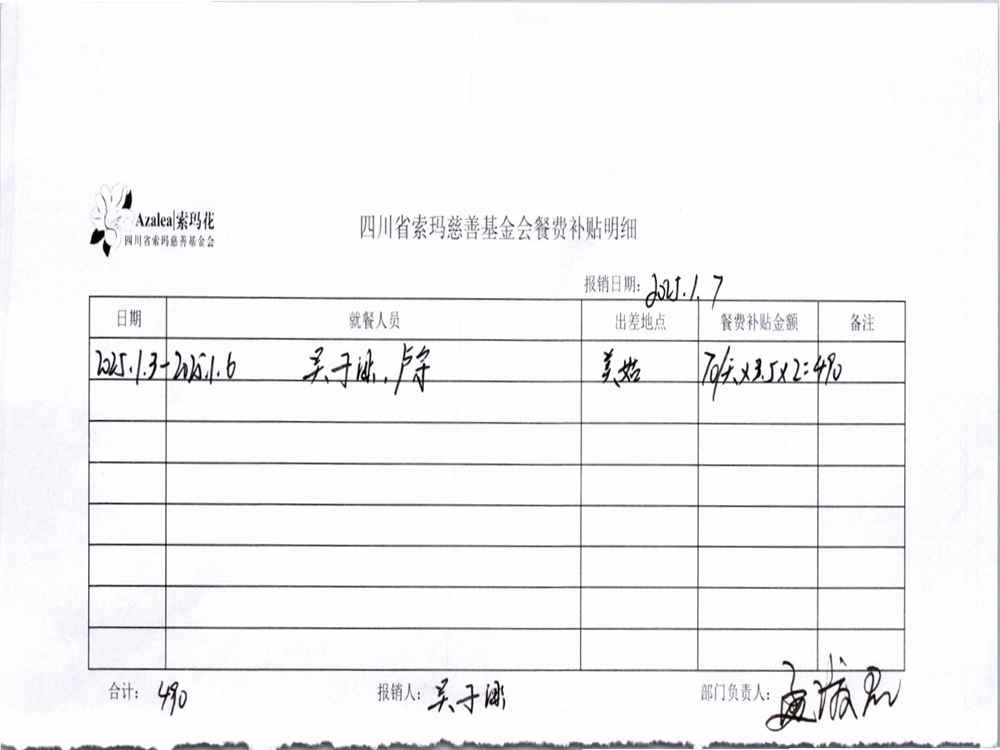 Azalea|索玛花
四川省索玛慈善基金会
四川省索玛慈善基金会餐费补贴明细
报销日期：2025.1.7
日期 就餐人员 出差地点 餐费补贴金额 备注
2025.1.3-2025.1.6 吴于泳,卢宇 美姑 70/天×3.5×2=490
合计：490 报销人：吴于泳 部门负责人：